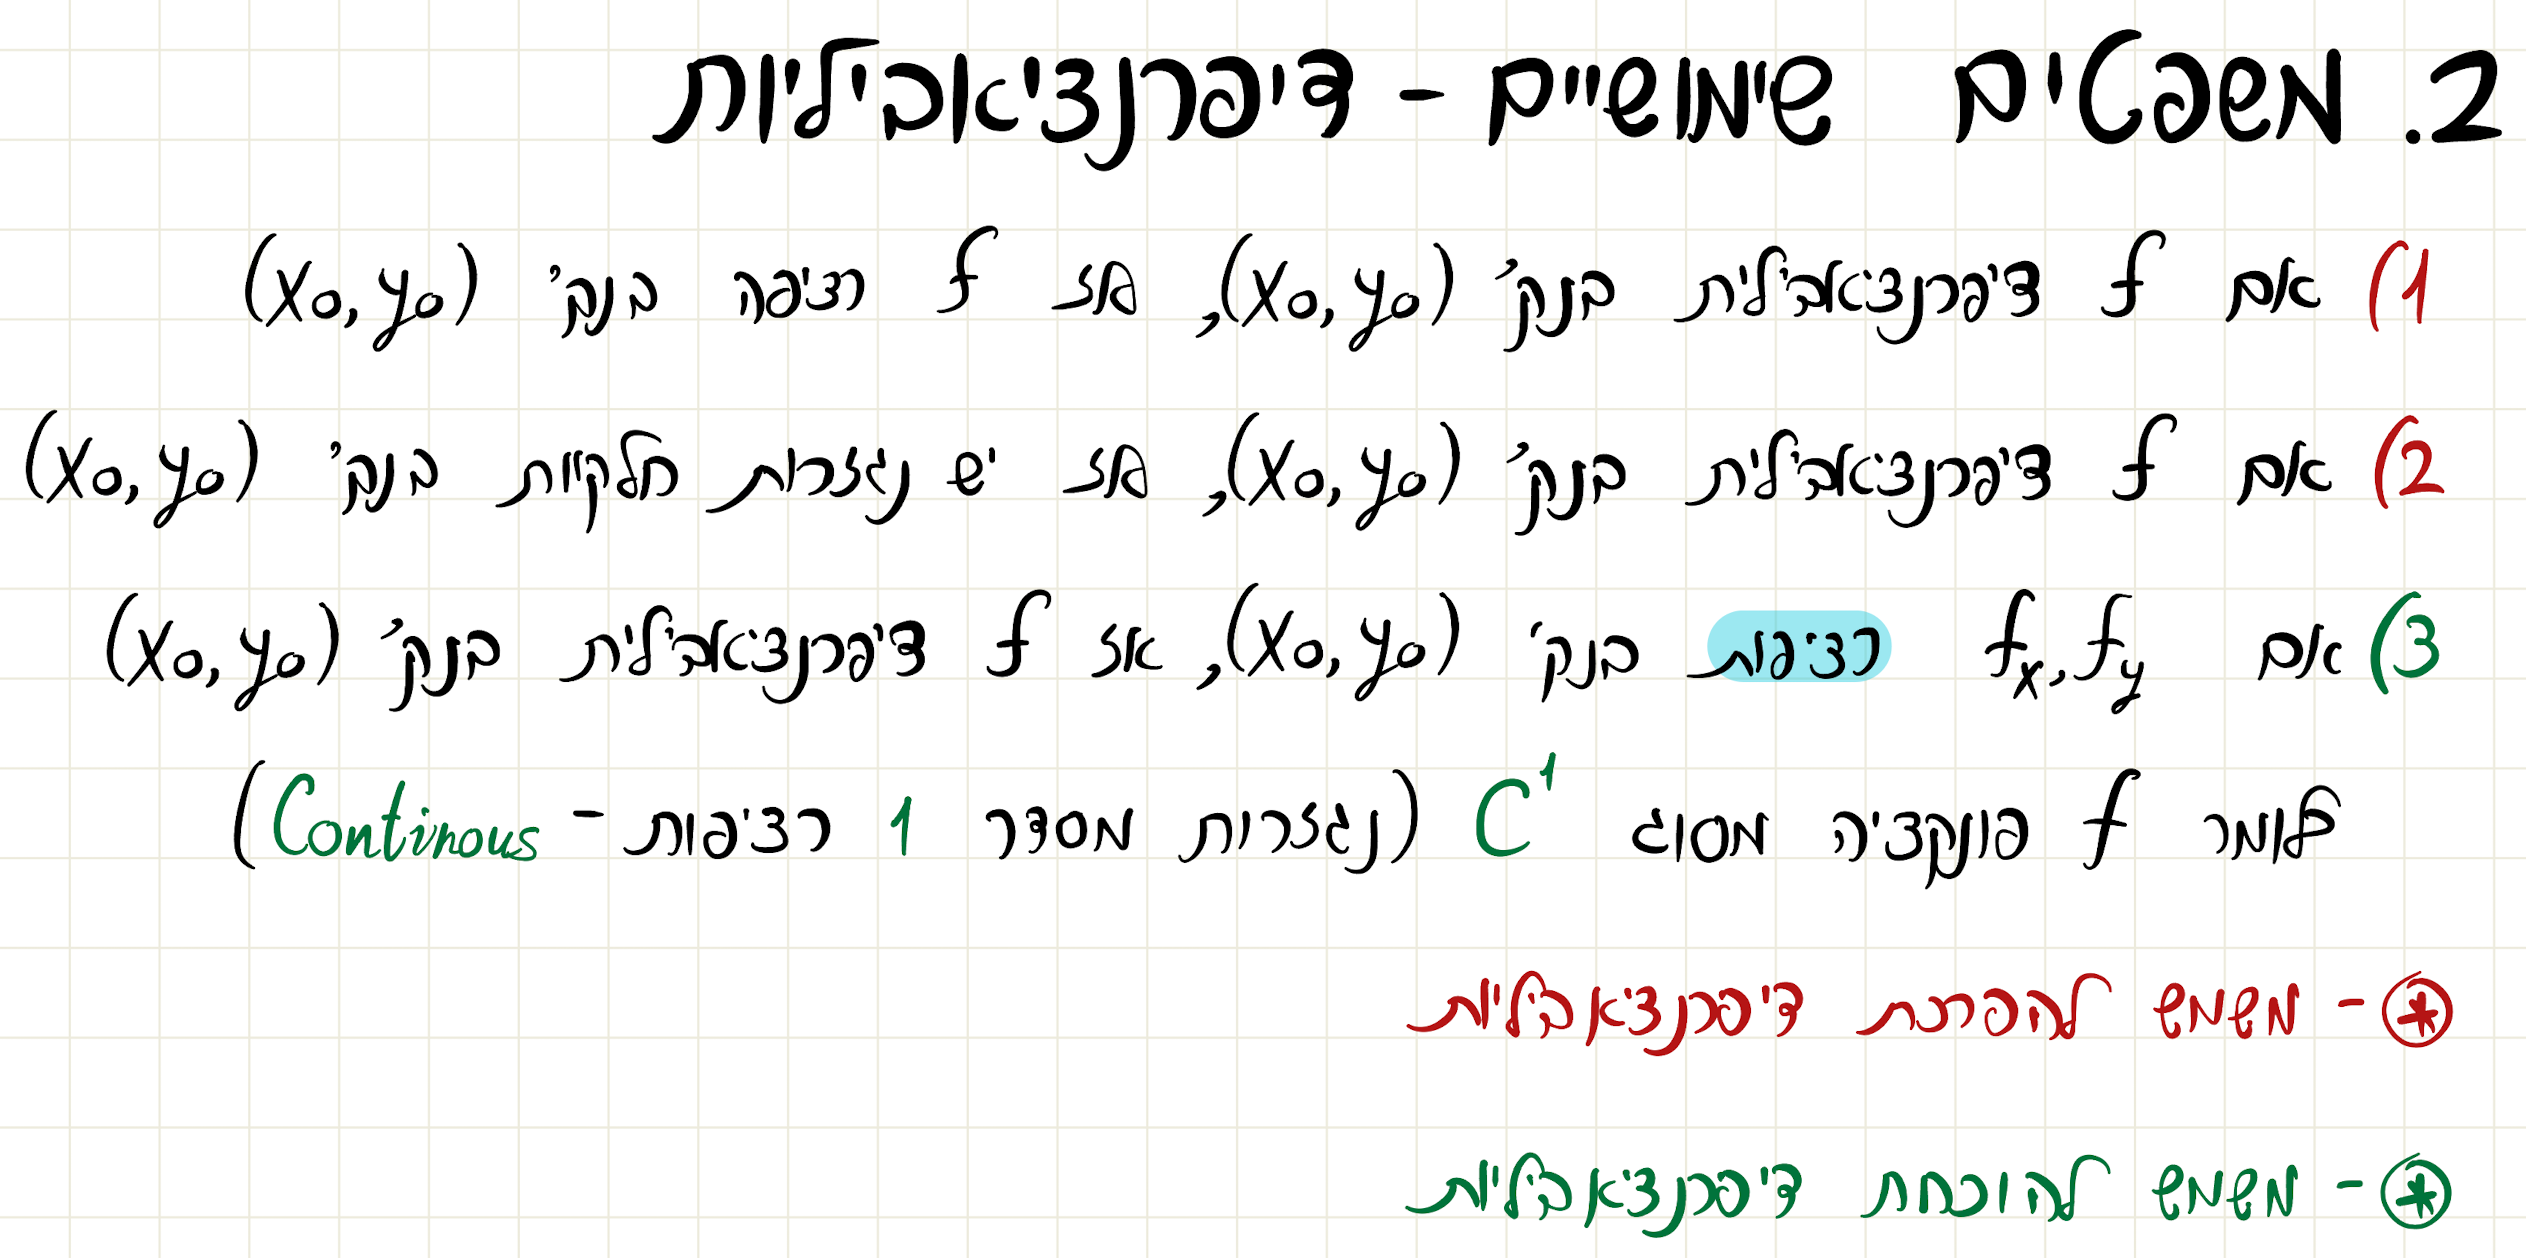 2. משפטים שימושיים - דיפרנציאביליות
1) אם f דיפרנציאבילית בנק' (x₀, y₀), אז f רציפה בנק' (x₀, y₀)
2) אם f דיפרנציאבילית בנק' (x₀, y₀), אז יש נגזרות חלקיות בנק' (x₀, y₀)
3) אם fₓ, f_y רציפות בנק' (x₀, y₀), אז f דיפרנציאבילית בנק' (x₀, y₀)
כלומר f פונקציה מסוג C¹ (נגזרות מסדר 1 רציפות - Continous)
⊛ - משמש להפרכת דיפרנציאביליות
⊛ - משמש להוכחת דיפרנציאביליות